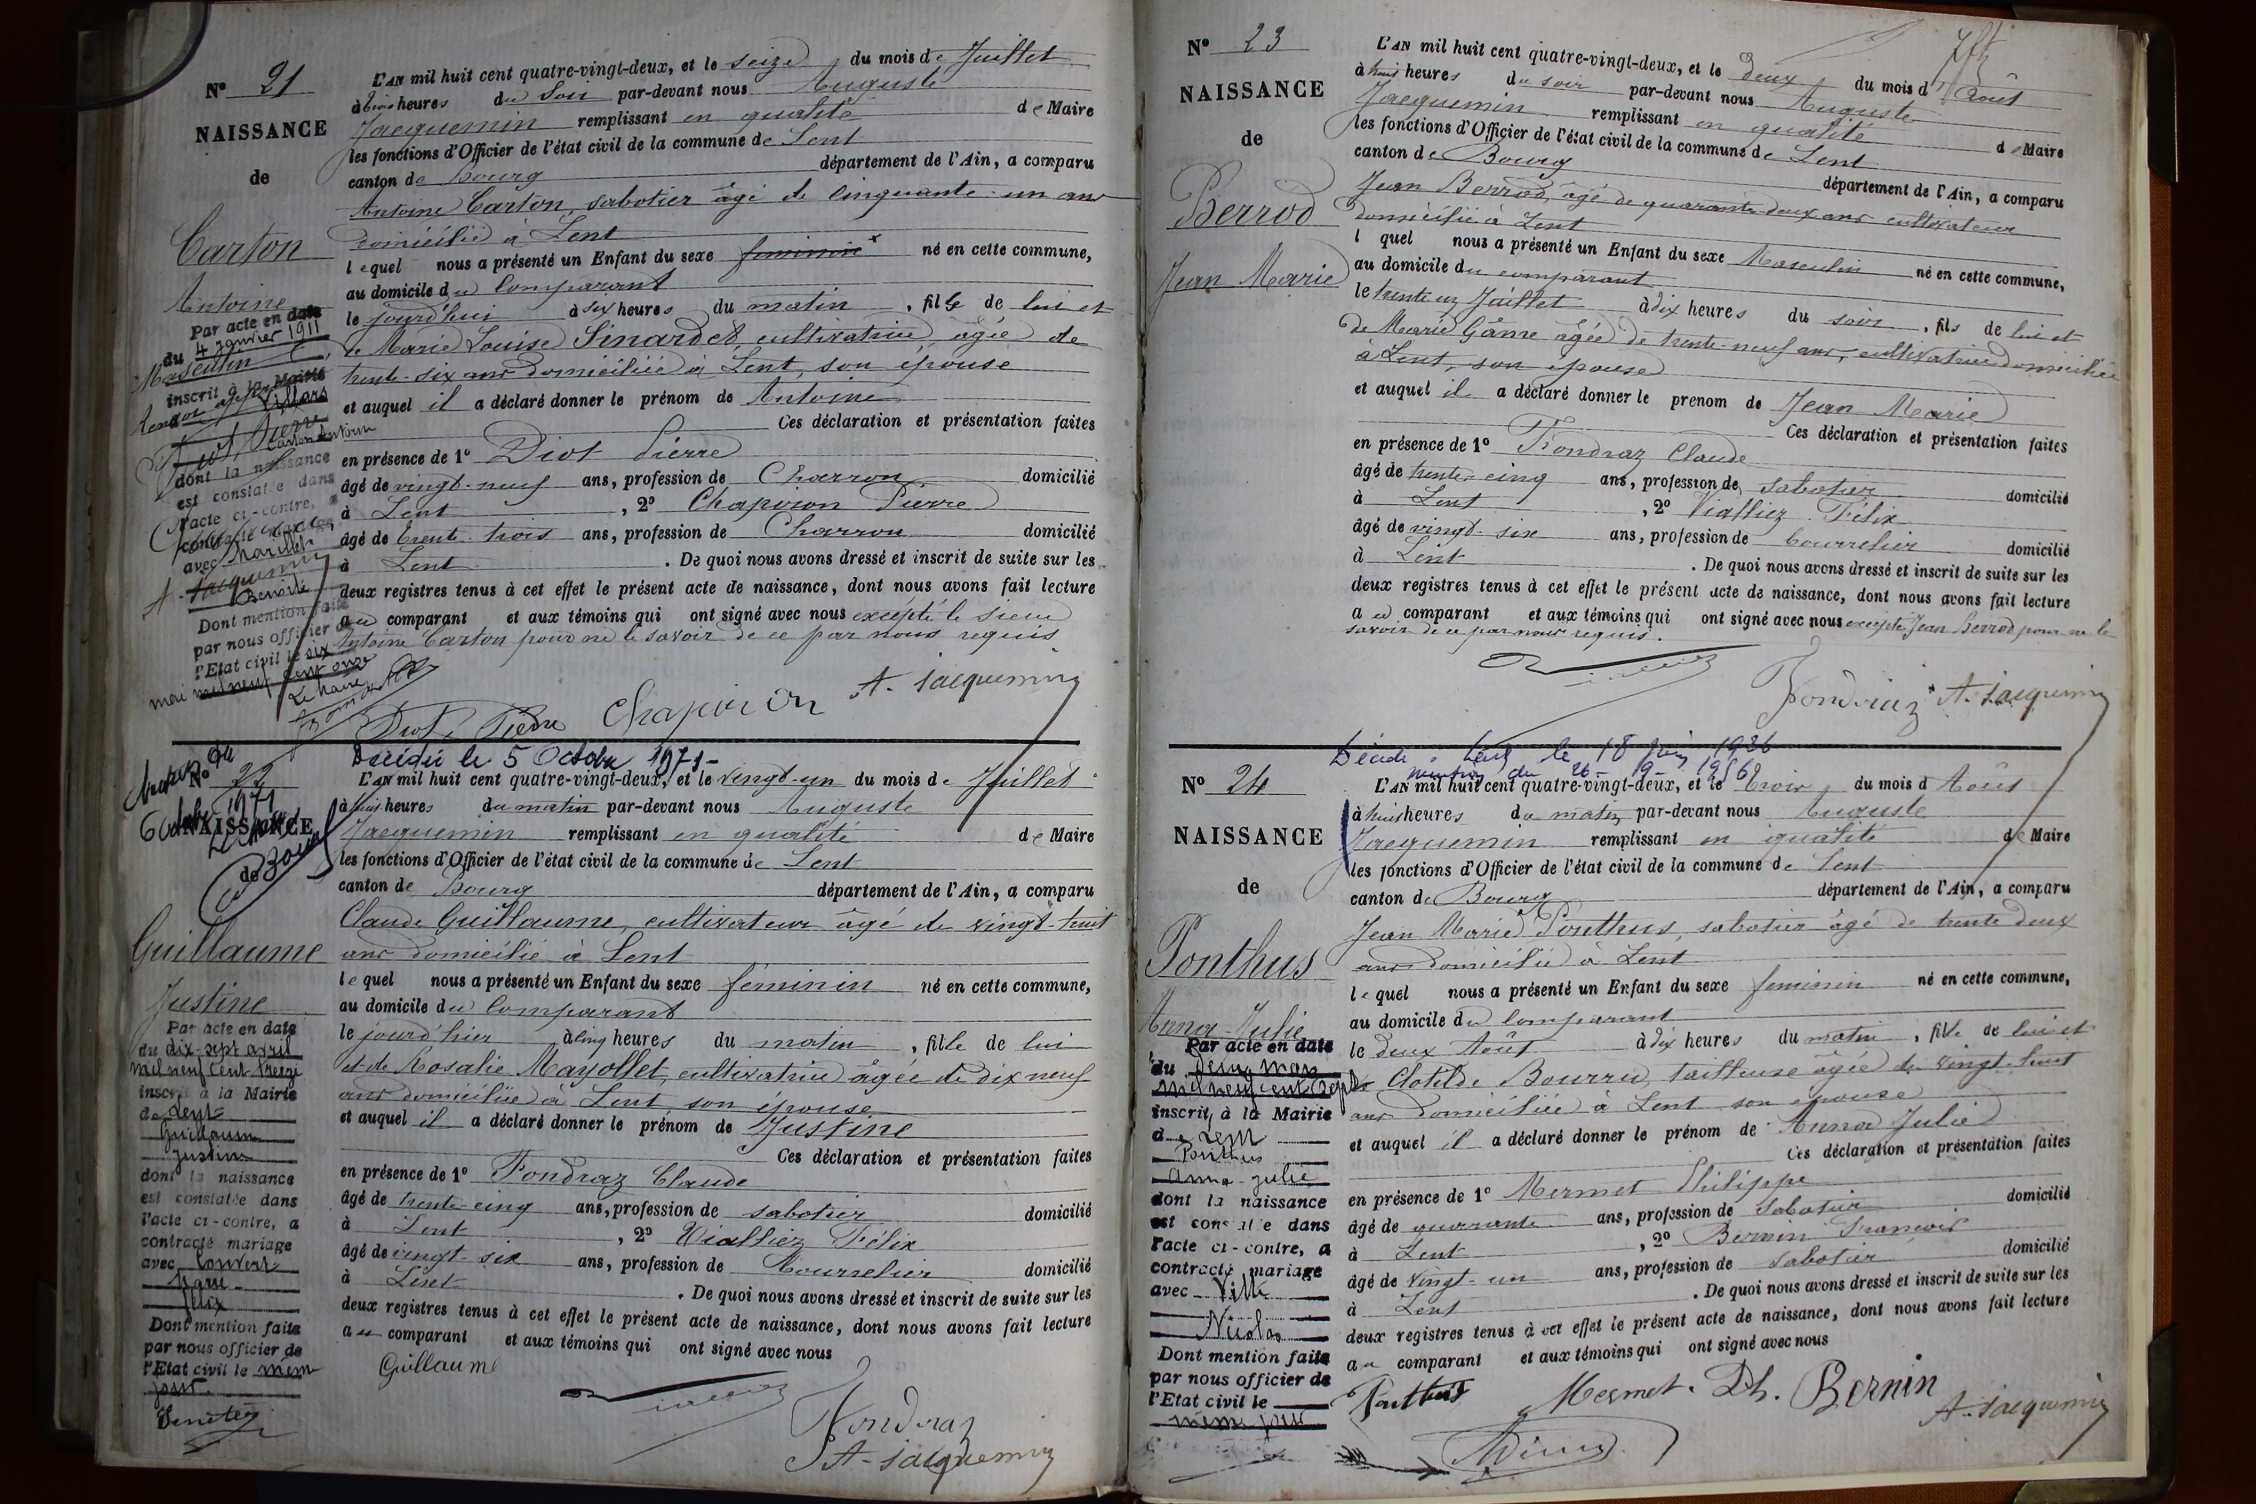 N° 21
NAISSANCE
de
Carton
Antoine
Par acte en date
du 4 janvier 1911
Masculin
inscrit à la Mairie
Villars
Diot Pierre
Carton Antoine
dont la naissance
est constatée dans
l'acte ci-contre, a
contracté mariage
avec
A. Jacquemin
Benoite
Dont mention faite
par nous officier de
l'Etat civil le six
mai mil neuf cent onze
Le Maire
L'AN mil huit cent quatre-vingt-deux, et le seize du mois de Juillet
à trois heures du Soir par-devant nous Auguste
Jacquemin remplissant en qualité de Maire
les fonctions d'Officier de l'état civil de la commune de Lent
canton de Bourg département de l'Ain, a comparu
Antoine Carton, sabotier âgé de cinquante-un ans
domicilié à Lent
lequel nous a présenté un Enfant du sexe feminin x né en cette commune,
au domicile du Comparant
le jourd'hui à six heures du matin, fils de lui et
de Marie Louise Sinardet, cultivatrice, âgée de
trente-six ans domiciliée à Lent, son épouse
et auquel il a déclaré donner le prénom de Antoine
Ces déclaration et présentation faites
en présence de 1° Diot Pierre
âgé de vingt-neuf ans, profession de Charron domicilié
à Lent, 2° Chapoion Pierre
âgé de trente-trois ans, profession de Charron domicilié
à Lent. De quoi nous avons dressé et inscrit de suite sur les
deux registres tenus à cet effet le présent acte de naissance, dont nous avons fait lecture
au comparant et aux témoins qui ont signé avec nous excepté le sieur
Antoine Carton pour ne le savoir de ce par nous requis
Diot Pierre Chapoion A. Jacquemin
Décédée le 5 Octobre 1971-
N° 22
6 Octobre 1971
NAISSANCE
de
Guillaume
Justine
Par acte en date
du dix-sept avril
mil neuf cent treize
inscrit à la Mairie
de Lent
Guillaume
Justine
dont la naissance
est constatée dans
l'acte ci-contre, a
contracté mariage
avec Convert
Marie
félix
Dont mention faite
par nous officier de
l'Etat civil le même
jour
L'AN mil huit cent quatre-vingt-deux, et le vingt-un du mois de Juillet
à huit heures du matin par-devant nous Auguste
Jacquemin remplissant en qualité de Maire
les fonctions d'Officier de l'état civil de la commune de Lent
canton de Bourg département de l'Ain, a comparu
Claude Guillaume, cultivateur âgé de vingt-huit
ans domicilié à Lent
lequel nous a présenté un Enfant du sexe féminin né en cette commune,
au domicile du Comparant
le jourd'hier à cinq heures du matin, fille de lui
et de Rosalie Mayollet, cultivatrice âgée de dix neuf
ans domiciliée à Lent son épouse
et auquel il a déclaré donner le prénom de Justine
Ces déclaration et présentation faites
en présence de 1° Fondraz Claude
âgé de trente-cinq ans, profession de sabotier domicilié
à Lent, 2° Vialliez Félix
âgé de vingt-six ans, profession de Bourrelier domicilié
à Lent. De quoi nous avons dressé et inscrit de suite sur les
deux registres tenus à cet effet le présent acte de naissance, dont nous avons fait lecture
au comparant et aux témoins qui ont signé avec nous
Guillaume
Fondraz
A. Jacquemin
N° 23
NAISSANCE
de
Berrod
Jean Marie
L'AN mil huit cent quatre-vingt-deux, et le deux du mois d'Août
à huit heures du soir par-devant nous Auguste
Jacquemin remplissant en qualité de Maire
les fonctions d'Officier de l'état civil de la commune de Lent
canton de Bourg département de l'Ain, a comparu
Jean Berrod, âgé de quarante-deux ans cultivateur
domicilié à Lent
l quel nous a présenté un Enfant du sexe Masculin né en cette commune,
au domicile du comparant
le trente un Juillet à dix heures du soir, fils de lui et
de Marie Gâme âgée de trente-neuf ans, cultivatrice domiciliée
à Lent, son épouse
et auquel il a déclaré donner le prenom de Jean Marie
Ces déclaration et présentation faites
en présence de 1° Fondraz Claude
âgé de trente-cinq ans, profession de sabotier domicilié
à Lent, 2° Vialliez Félix
âgé de vingt-six ans, profession de bourrelier domicilié
à Lent. De quoi nous avons dressé et inscrit de suite sur les
deux registres tenus à cet effet le présent acte de naissance, dont nous avons fait lecture
au comparant et aux témoins qui ont signé avec nous excepté Jean Berrod pour ne le
savoir de ce par nous requis.
Fondraz A. Jacquemin
Décédé à Lent le 18 Juin 1936
mention du 26-19-1956
N° 24
NAISSANCE
de
Ponthus
Anna Julie
Par acte en date
du deux mars
mil neuf cent sept
inscrit à la Mairie
de Lent
Ponthus
Anna Julie
dont la naissance
est constatée dans
l'acte ci-contre, a
contracté mariage
avec Ville
Nicolas
Dont mention faite
par nous officier de
l'Etat civil le
même jour
L'AN mil huit cent quatre-vingt-deux, et le trois du mois d'Août
à huit heures du matin par-devant nous Auguste
Jacquemin remplissant en qualité de Maire
les fonctions d'Officier de l'état civil de la commune de Lent
canton de Bourg département de l'Ain, a comparu
Jean Marie Ponthus, sabotier âgé de trente deux
ans domicilié à Lent
lequel nous a présenté un Enfant du sexe féminin né en cette commune,
au domicile du Comparant
le deux Août à dix heures du matin, fille de lui et
de Clotilde Bourru, tailleuse âgée de vingt-huit
ans domiciliée à Lent son épouse
et auquel il a déclaré donner le prénom de Anna Julie
Ces déclaration et présentation faites
en présence de 1° Mermet Philippe
âgé de quarante ans, profession de Sabotier domicilié
à Lent, 2° Bernin François
âgé de vingt-un ans, profession de sabotier domicilié
à Lent. De quoi nous avons dressé et inscrit de suite sur les
deux registres tenus à cet effet le présent acte de naissance, dont nous avons fait lecture
au comparant et aux témoins qui ont signé avec nous
Ponthus Mermet. Ph. Bernin
A. Jacquemin